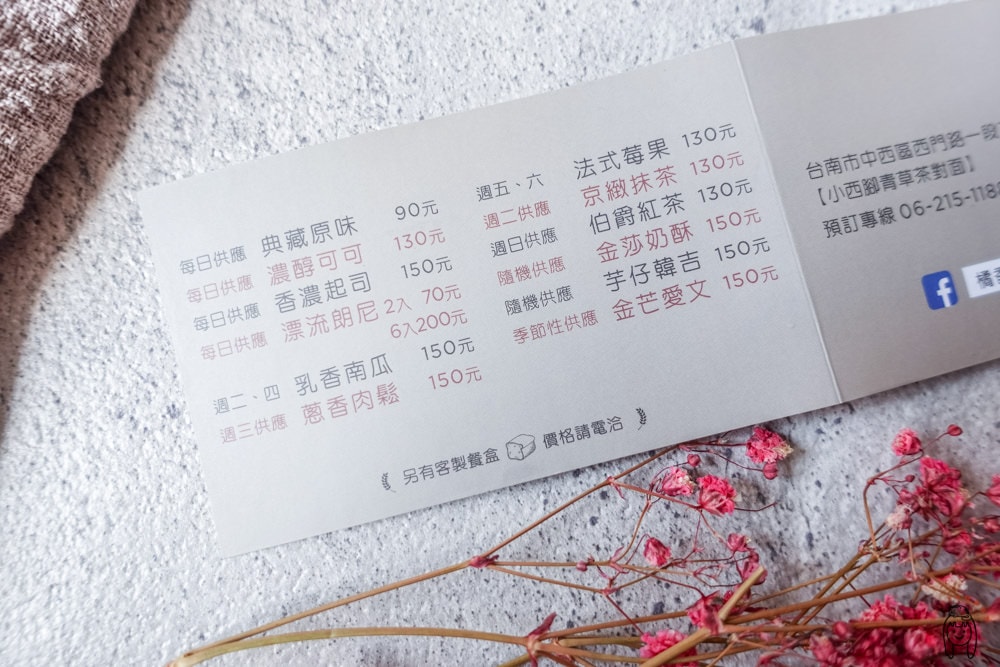 每日供應 典藏原味 90元
每日供應 濃醇可可 130元
每日供應 香濃起司 150元
每日供應 漂流朗尼 2入 70元
6入200元
週二、四 乳香南瓜 150元
週三供應 蔥香肉鬆 150元
週五、六 法式莓果 130元
週二供應 京緻抹茶 130元
週日供應 伯爵紅茶 130元
隨機供應 金莎奶酥 150元
隨機供應 芋仔韓吉 150元
季節性供應 金芒愛文 150元
另有客製餐盒 價格請電洽
台南市中西區西門路一段
【小西腳青草茶對面】
預訂專線 06-215-118
f 橘